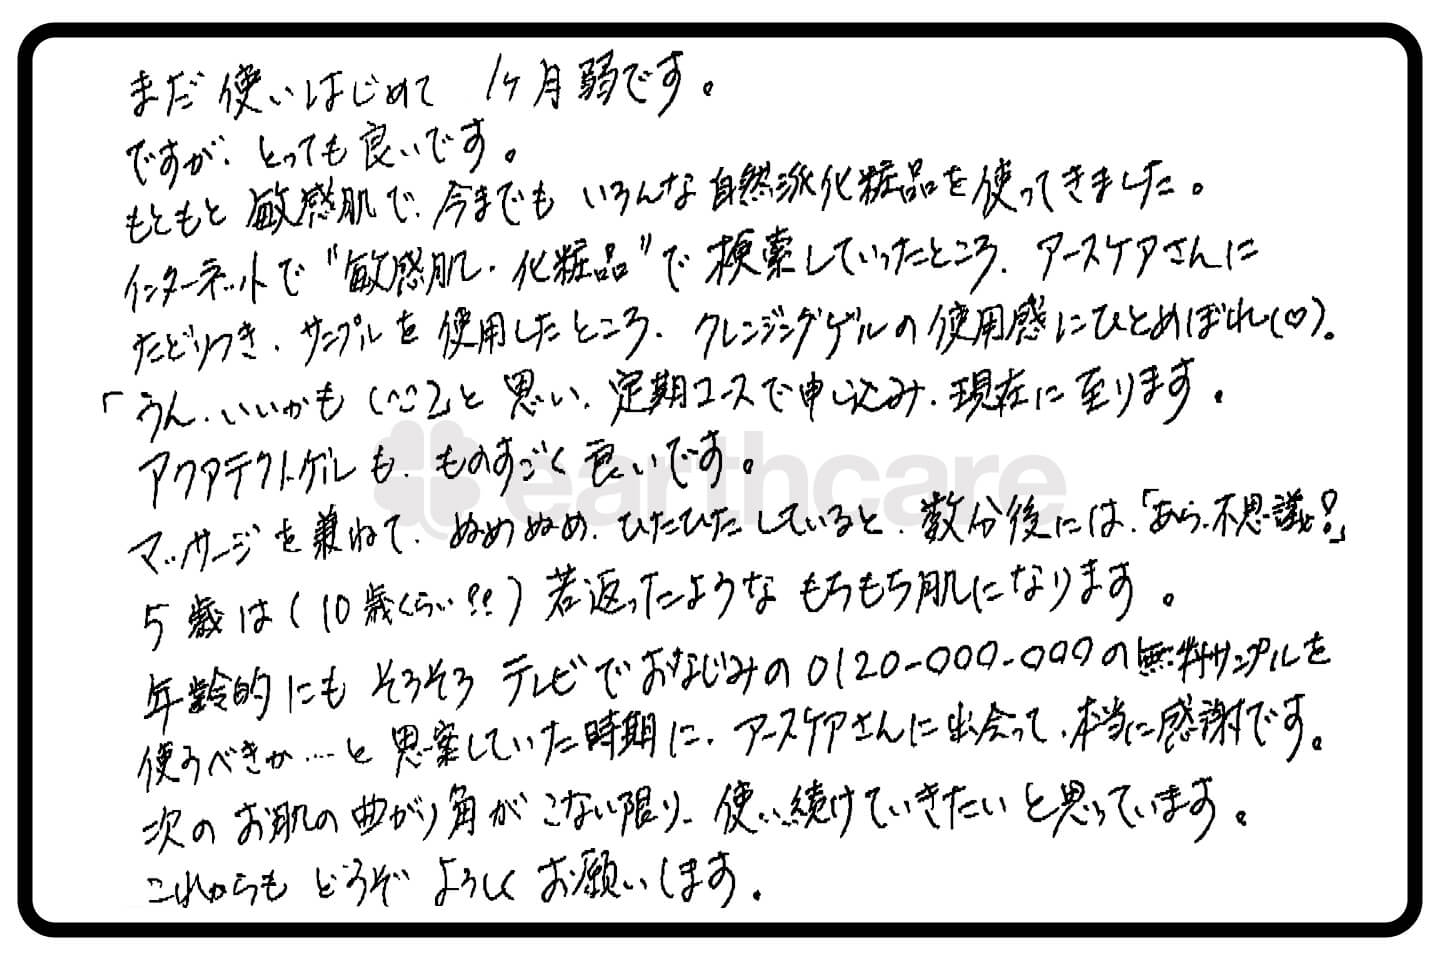 まだ使いはじめて 1ヶ月弱です。
ですが、とっても良いです。
もともと敏感肌で、今までも いろんな自然派化粧品を使ってきました。
インターネットで“敏感肌・化粧品”で検索していったところ、アースケアさんに
たどりつき、サンプルを使用したところ、クレンジングゲルの使用感にひとめぼれ(♡)。
「うん、いいかも(^^)」と思い、定期コースで申し込み、現在に至ります。
アクアテクトゲルも、ものすごく良いです。
マッサージを兼ねて、ぬめぬめ、ひたひたしていると、数分後には、「あら、不思議!」
5歳は(10歳くらい!?)若返ったようなもちもち肌になります。
年齢的にもそろそろテレビでおなじみの0120-000-000の無料サンプルを
使うべきか…と思案していた時期に、アースケアさんに出会って、本当に感謝です。
次のお肌の曲がり角がこない限り、使い続けていきたいと思っています。
これからも どうぞ よろしく お願いします。
earthcare